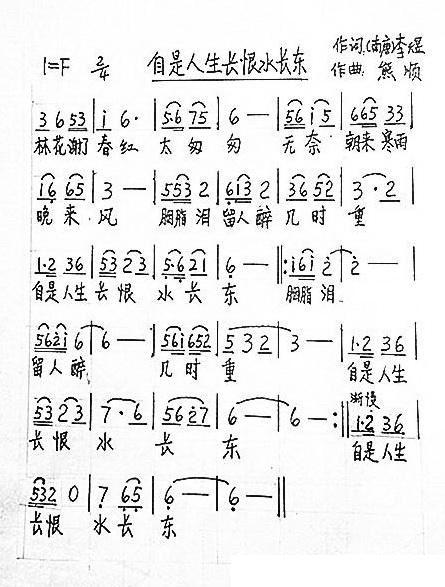 自是人生长恨水长东
作词:(南唐)李煜
1=F 2/4 作曲:熊顺
3 6 5 3 | i 6· | 5·6 7 5 | 6 — | 5 6 i 5 | 6 6 5 3 3 |
林花谢了 春红 太匆匆 无奈 朝来寒雨
i 6 6 5 | 3 — | 5 5 3 2 | 6 1 3 2 | 3 6 5 2 | 3·2 |
晚来风 胭脂泪 留人醉 几时重
1·2 3 6 | 5 3 2 3 | 5·6 2 1 | 6 — ‖: i 6 i 2 | 2 — |
自是人生长恨 水长东 胭脂泪
5 6 2 i 6 | 6 — | 5 6 i 6 5 2 | 5 3 2 | 3 — | 1·2 3 6 |
留人醉 几时重 自是人生
5 3 2 3 | 7·6 | 5 6 2 7 | 6 — | 6 — :‖ 渐慢 1·2 3 6 |
长恨 水 长 东 自是人生
5 3 2 0 | 7 6 5 | 6 — | 6 — ‖
长恨 水长东